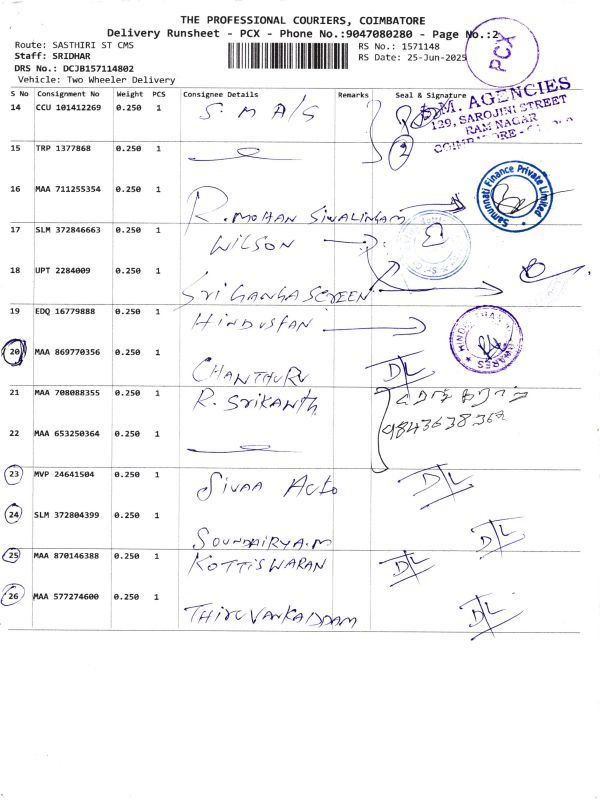 THE PROFESSIONAL COURIERS, COIMBATORE
Delivery Runsheet - PCX - Phone No.:9047080280 - Page No.:2
Route: SASTHIRI ST CMS
RS No.: 1571148
Staff: SRIDHAR
RS Date: 25-Jun-2025
DRS No.: DCJB157114802
Vehicle: Two Wheeler Delivery
PCX
S No Consignment No Weight PCS Consignee Details Remarks Seal & Signature
14 CCU 101412269 0.250 1 S. M A/S
M. AGENCIES
129, SAROJINI STREET
RAM NAGAR
2
15 TRP 1377868 0.250 1
16 MAA 711255354 0.250 1 R. MOHAN SIVALINGAM
Samunnati Finance Private Limited
17 SLM 372846663 0.250 1 WILSON
18 UPT 2284009 0.250 1 SRI GANGA SCREEN
19 EDQ 16779888 0.250 1 HINDUSTAN
20 MAA 869770356 0.250 1 CHANTHURU D/L
21 MAA 708088355 0.250 1 R. SRIKANTH
9843638362
22 MAA 653250364 0.250 1
23 MVP 24641504 0.250 1 SIVAA AUTO D/L
24 SLM 372804399 0.250 1 SOUNDAIRYA.M D/L
25 MAA 870146388 0.250 1 KOTTISWARAN D/L
26 MAA 577274600 0.250 1 THIRUVANKADDAM D/L